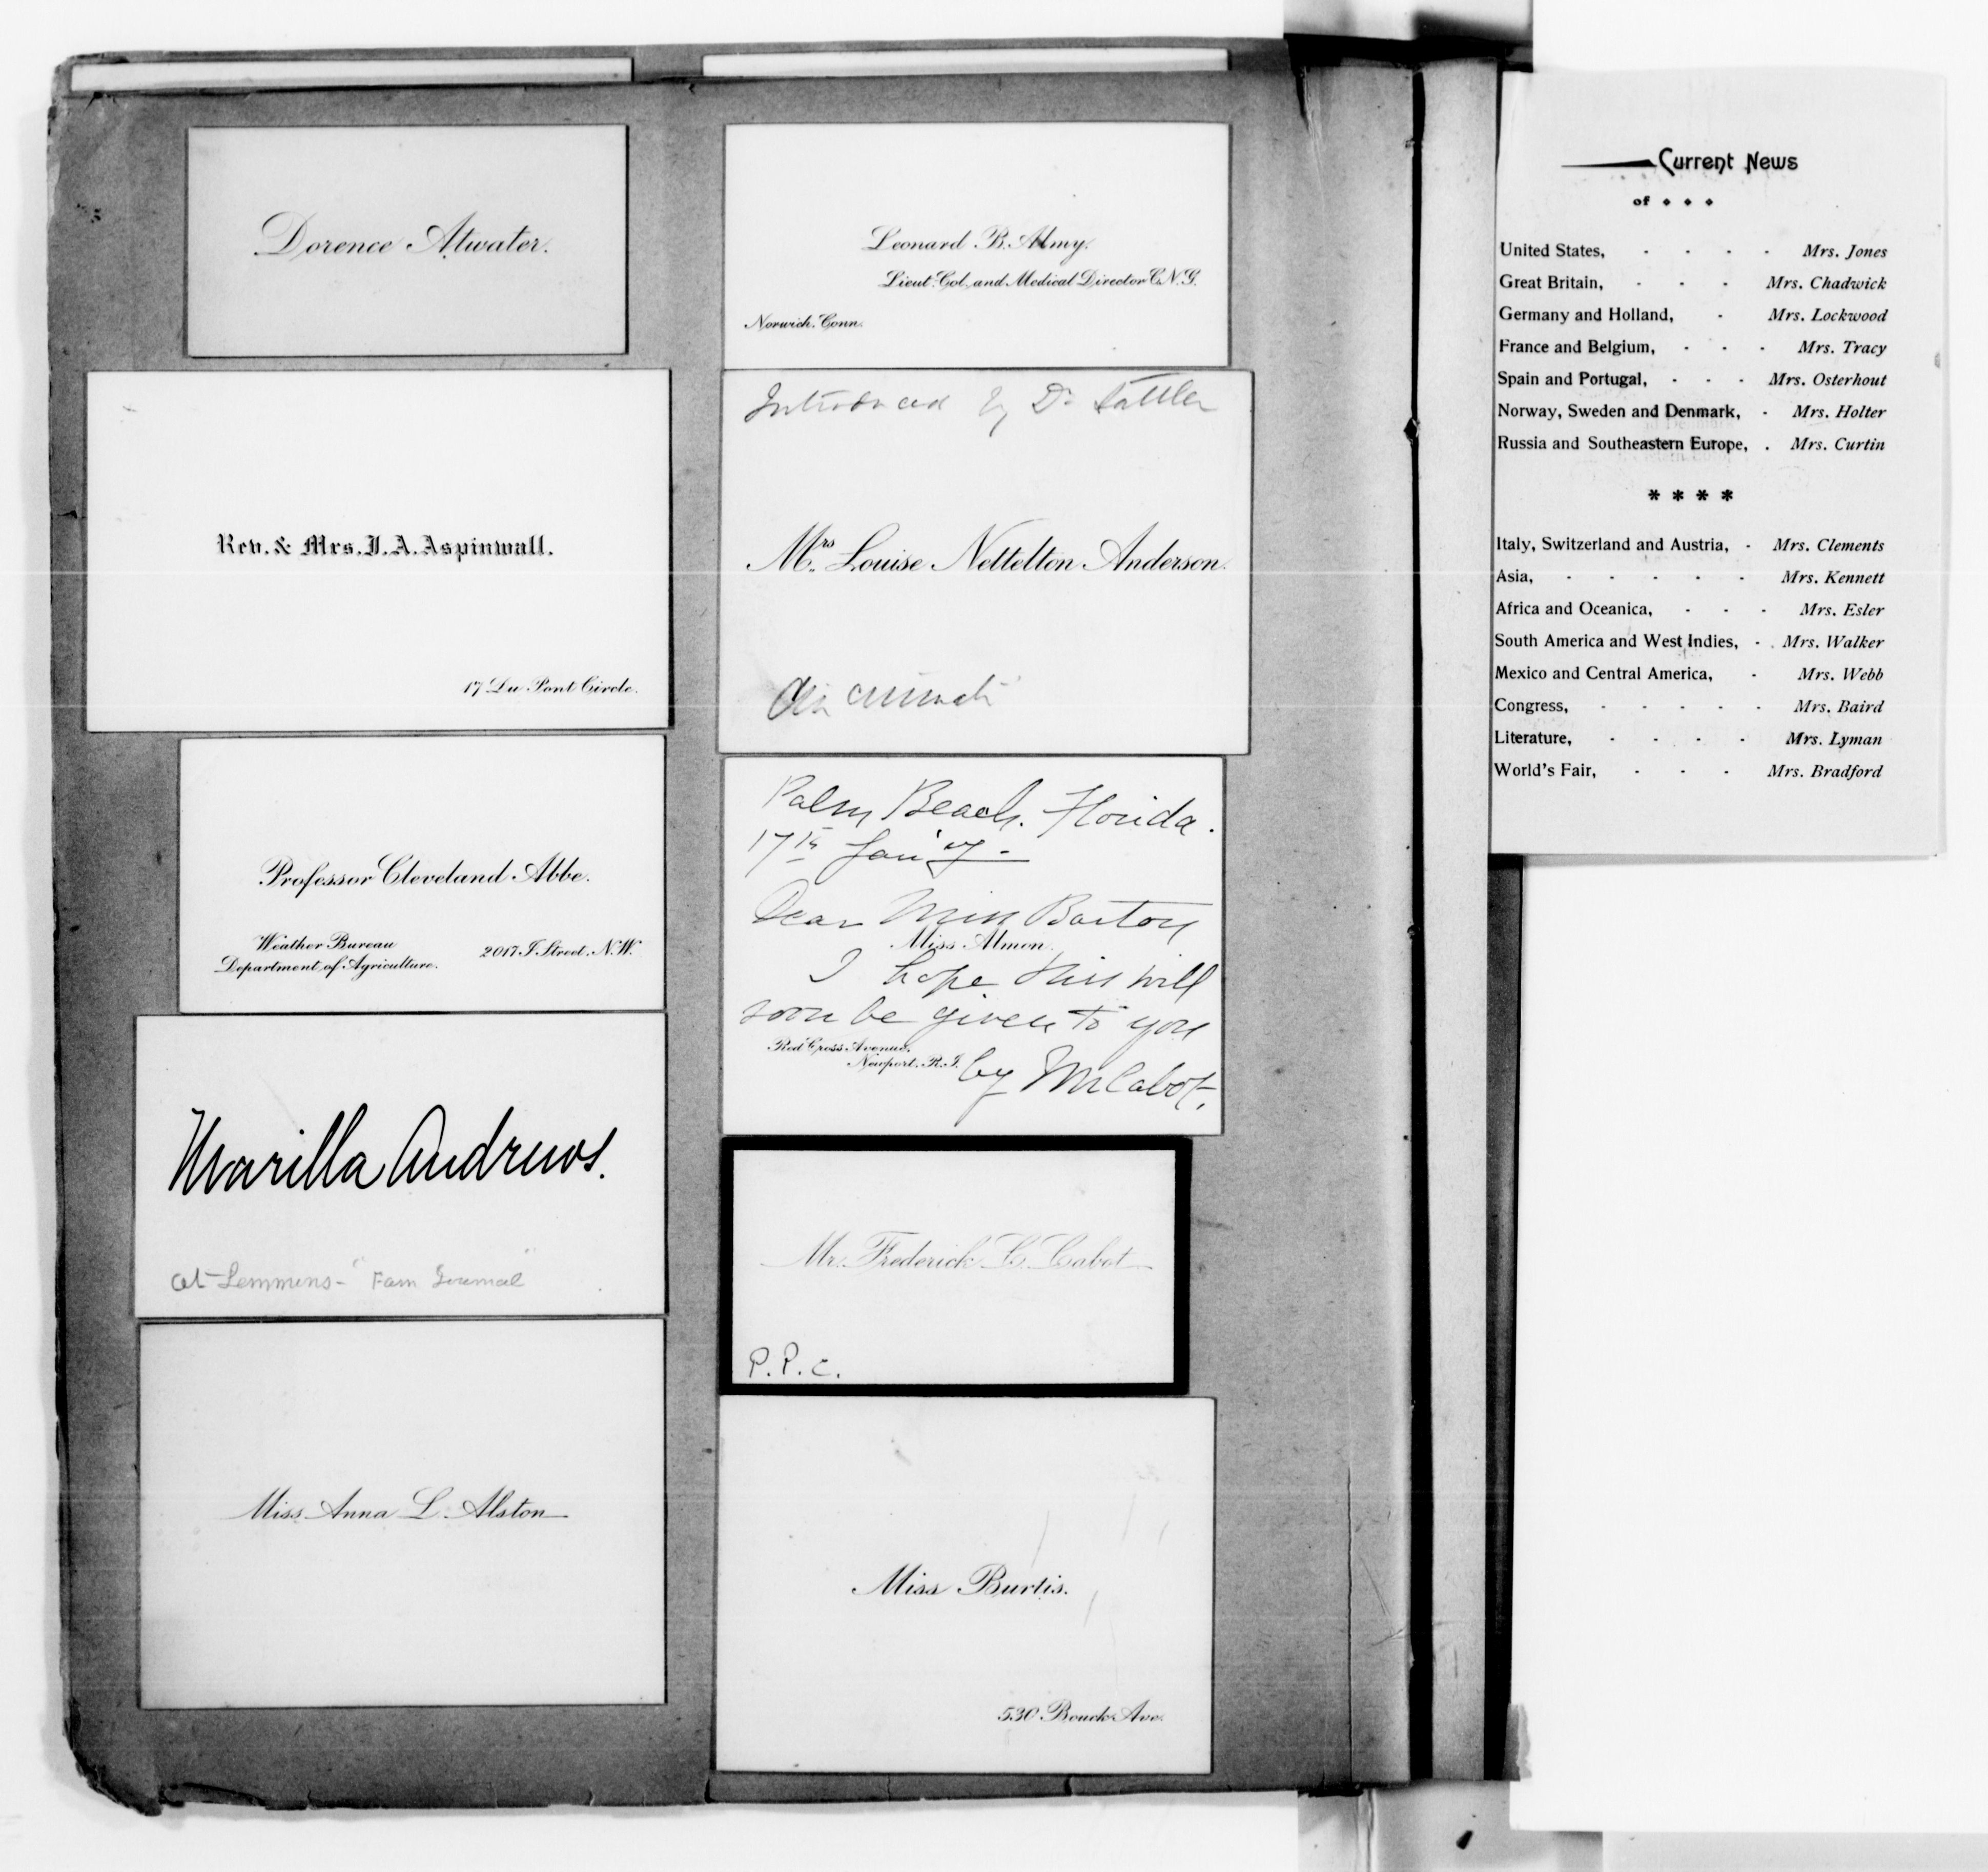 Dorence Atwater.
Rev. & Mrs. J. A. Aspinwall.
17 Du Pont Circle.
Professor Cleveland Abbe.
Weather Bureau
Department of Agriculture.
2017 I Street, N.W.
Marilla Andrews.
at Lemmens - "Fam Journal"
Miss Anna L. Alston
Leonard B. Almy.
Lieut. Col. and Medical Director C.N.G.
Norwich, Conn.
Introduced by Dr Sattler
Mrs. Louise Nettelton Anderson.
Cincinnati
Palm Beach. Florida.
17th Jan'
Dear Miss Barton
Miss Almon.
I hope this will
soon be given to you
Red Cross Avenue.
Newport. R. I.
by Mr Cabot.
Mr. Frederick C. Cabot
P. P. c.
Miss Burtis.
530 Bouck Ave.
Current News
of
United States, - - - - Mrs. Jones
Great Britain, - - - Mrs. Chadwick
Germany and Holland, - Mrs. Lockwood
France and Belgium, - - - Mrs. Tracy
Spain and Portugal, - - - Mrs. Osterhout
Norway, Sweden and Denmark, - Mrs. Holter
Russia and Southeastern Europe, . Mrs. Curtin
* * * *
Italy, Switzerland and Austria, - Mrs. Clements
Asia, - - - - - Mrs. Kennett
Africa and Oceanica, - - - Mrs. Esler
South America and West Indies, - . Mrs. Walker
Mexico and Central America, - Mrs. Webb
Congress, - - - - - Mrs. Baird
Literature, - - - - Mrs. Lyman
World's Fair, - - - Mrs. Bradford